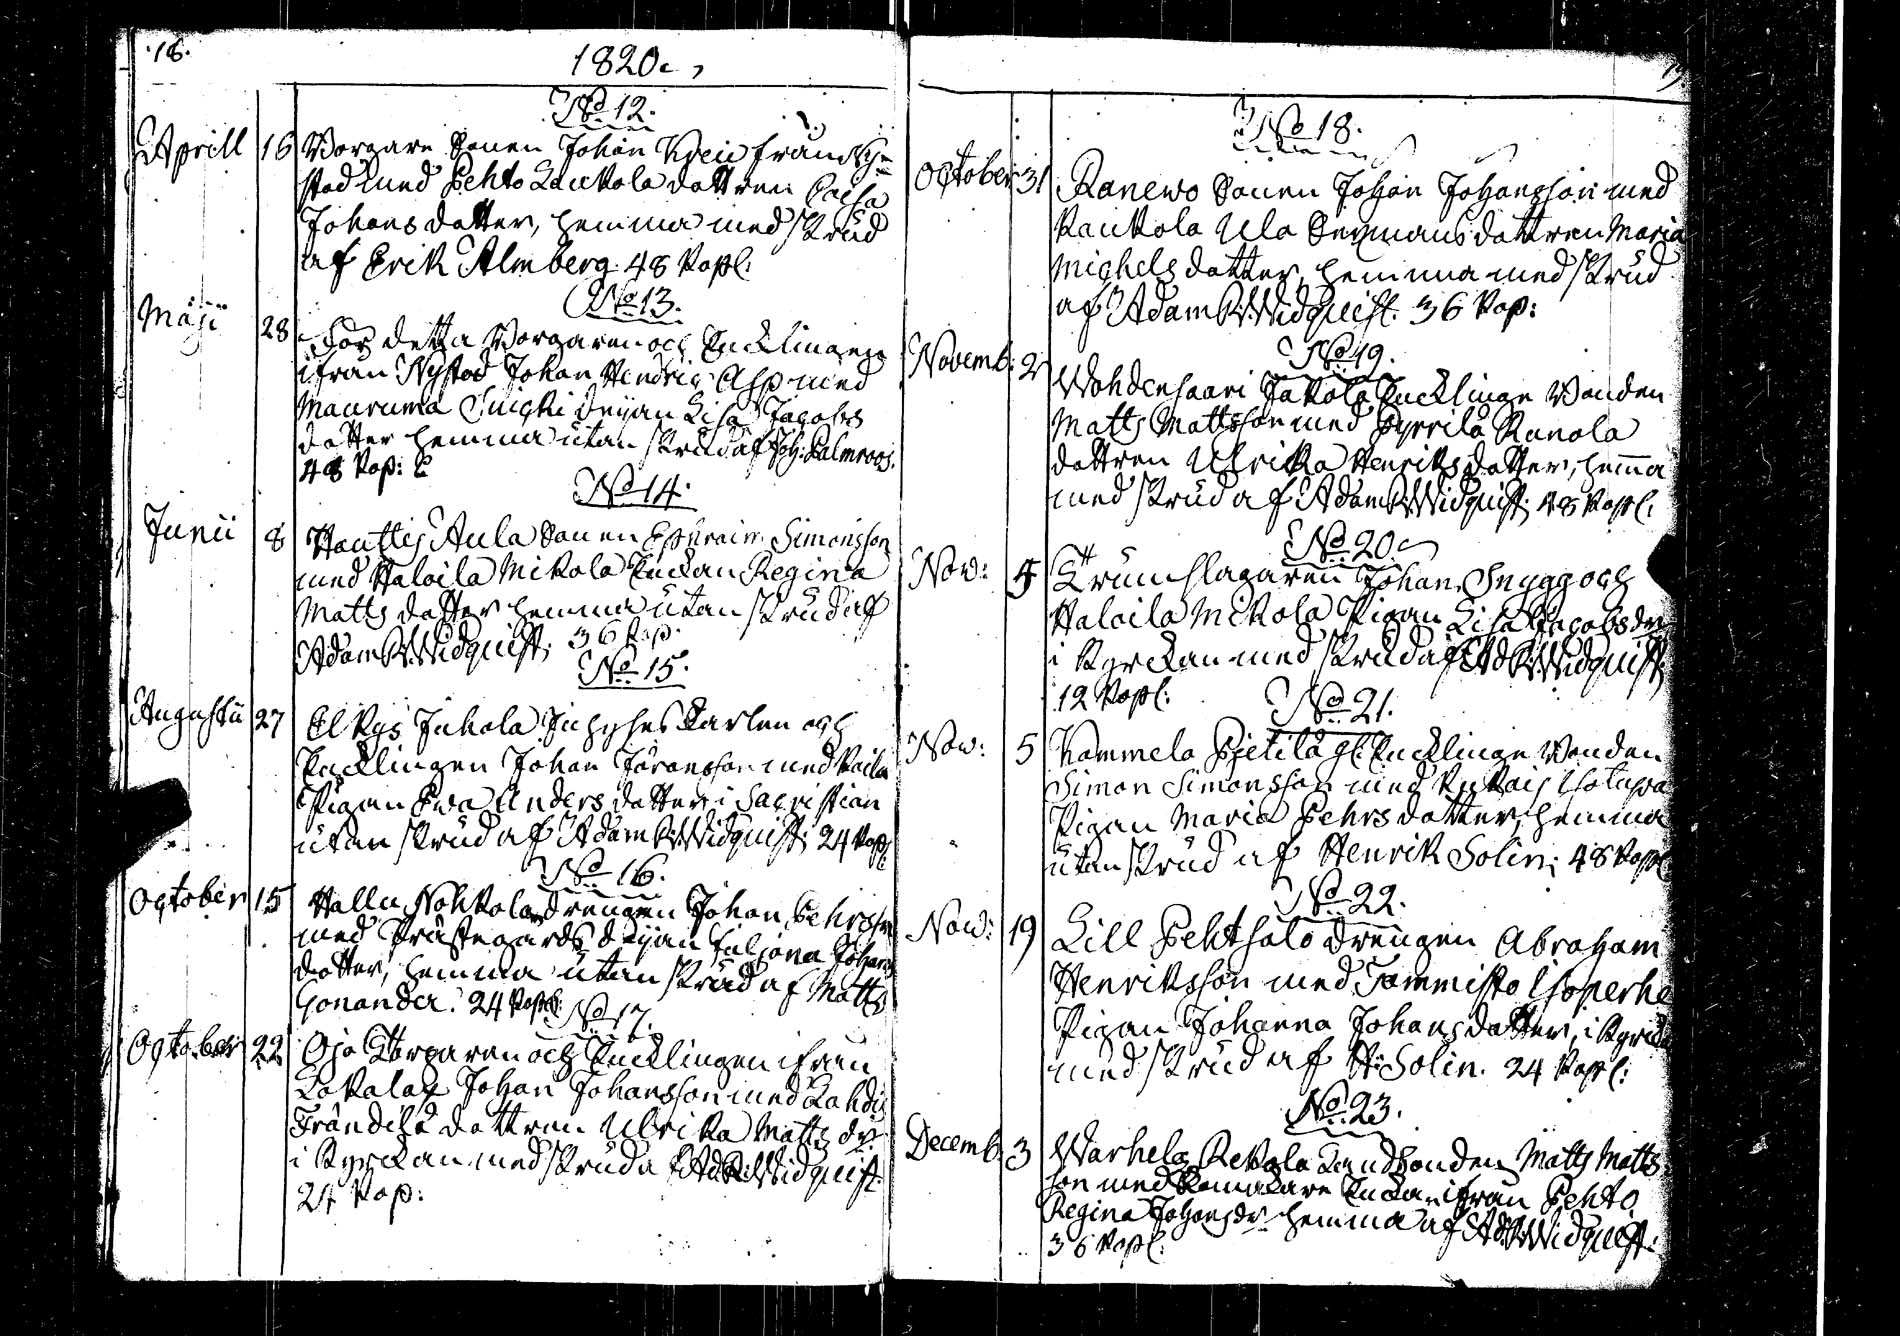 18.
1820.
No 12.
Aprill 16 Borgare Sonen Johan
stad med Pehto Laukola dottren Caisa
Johans dotter, hemma med skrud
af Erik Almberg. 48 Kop:
No 13.
Maji 28 För detta Borgaren och Enklingen
ifrån Nystad Johan Henric Alp med
Mauruma Deijan Lisa Jacobs
dotter hemma utan skrud af Joh: Palmroos.
48 Kop:
No 14.
Junii 8 Hauttis Aula Sonen Ephraim Simonsson
med Halaila Mikola Enkan Regina
Matts dotter hemma utan skrud af
Adam R: Widquist. 36 Kop.
No 15.
Augustii 27 Elkys Juhola Inhyses Karlen och
Encklingen Johan Göransson med
Pigan Ewa Anders dotter i Sacristian
utan skrud af Adam R: Widquist. 24 Kop:
No 16.
October 15 Hallu Nohkola drengen Johan Pehrsson
med Prästegårds Deijan Juljana Johans
dotter, hemma utan skrud af Matts
Gonander. 24 Kop:
No 17.
October 22 Oja Torparen och Encklingen ifrån
Lokalax Johan Johansson med Lahdis
Frändilä dottren Ulrika Matts dr
i Kyrckan med skrud af Ad: R: Widquist.
24 Kop:
19
No 18.
October 31 Ranewo Sonen Johan Johansson med
Kaukola Ula Dexmans dottren Maria
Michels dotter, hemma med skrud
af Adam R: Widquist. 36 Kop:
No 19.
Novemb: 2 Wohdensaari Jakola Encklinge Bonden
Matts Mattsson med Pyrrilä Ranola
dottren Ulrika Henriks dotter, hemma
med skrud af Adam R: Widquist. 48 Kop:
No 20.
Nov: 5 Trumslagaren Johan Snygg och
Halaila Mikola Pigan Lisa Jacobs dr
i Kyrckan med skrud af Ad: R: Widquist.
12 Kop:
No 21.
Nov: 5 Kammela Pietilä gl: Encklinge Bonden
Simon Simonsson med
Pigan Maria Pehrs dotter, hemma
utan skrud af Henrik Solin. 48 Kop:
No 22.
Nov: 19 Lill Pehtsalo drengen Abraham
Henriksson med Tammisto Isoperhe
Pigan Johanna Johans dotter, i Kyrck
med skrud af H: Solin. 24 Kop:
No 23.
Decemb: 3 Warhela Rekola Landbonden Matts Matts
son med Enkan ifrån Pehto
Regina Johans dr hemma af Ad: R: Widquist.
36 Kop: